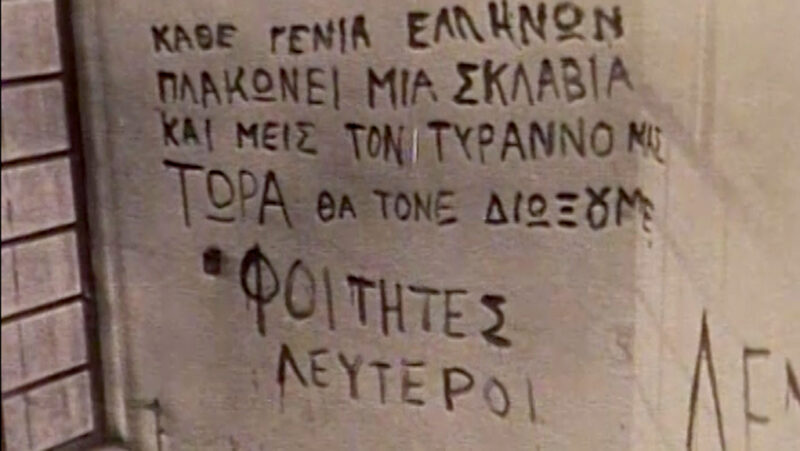 ΚΑΘΕ ΓΕΝΙΑ ΕΛΛΗΝΩΝ
ΠΛΑΚΩΝΕΙ ΜΙΑ ΣΚΛΑΒΙΑ
ΚΑΙ ΜΕΙΣ ΤΟΝ ΤΥΡΑΝΝΟ ΜΑΣ
ΤΩΡΑ ΘΑ ΤΟΝΕ ΔΙΩΞȢΜΕ
ΦΟΙΤΗΤΕΣ
ΛΕΥΤΕΡΟΙ